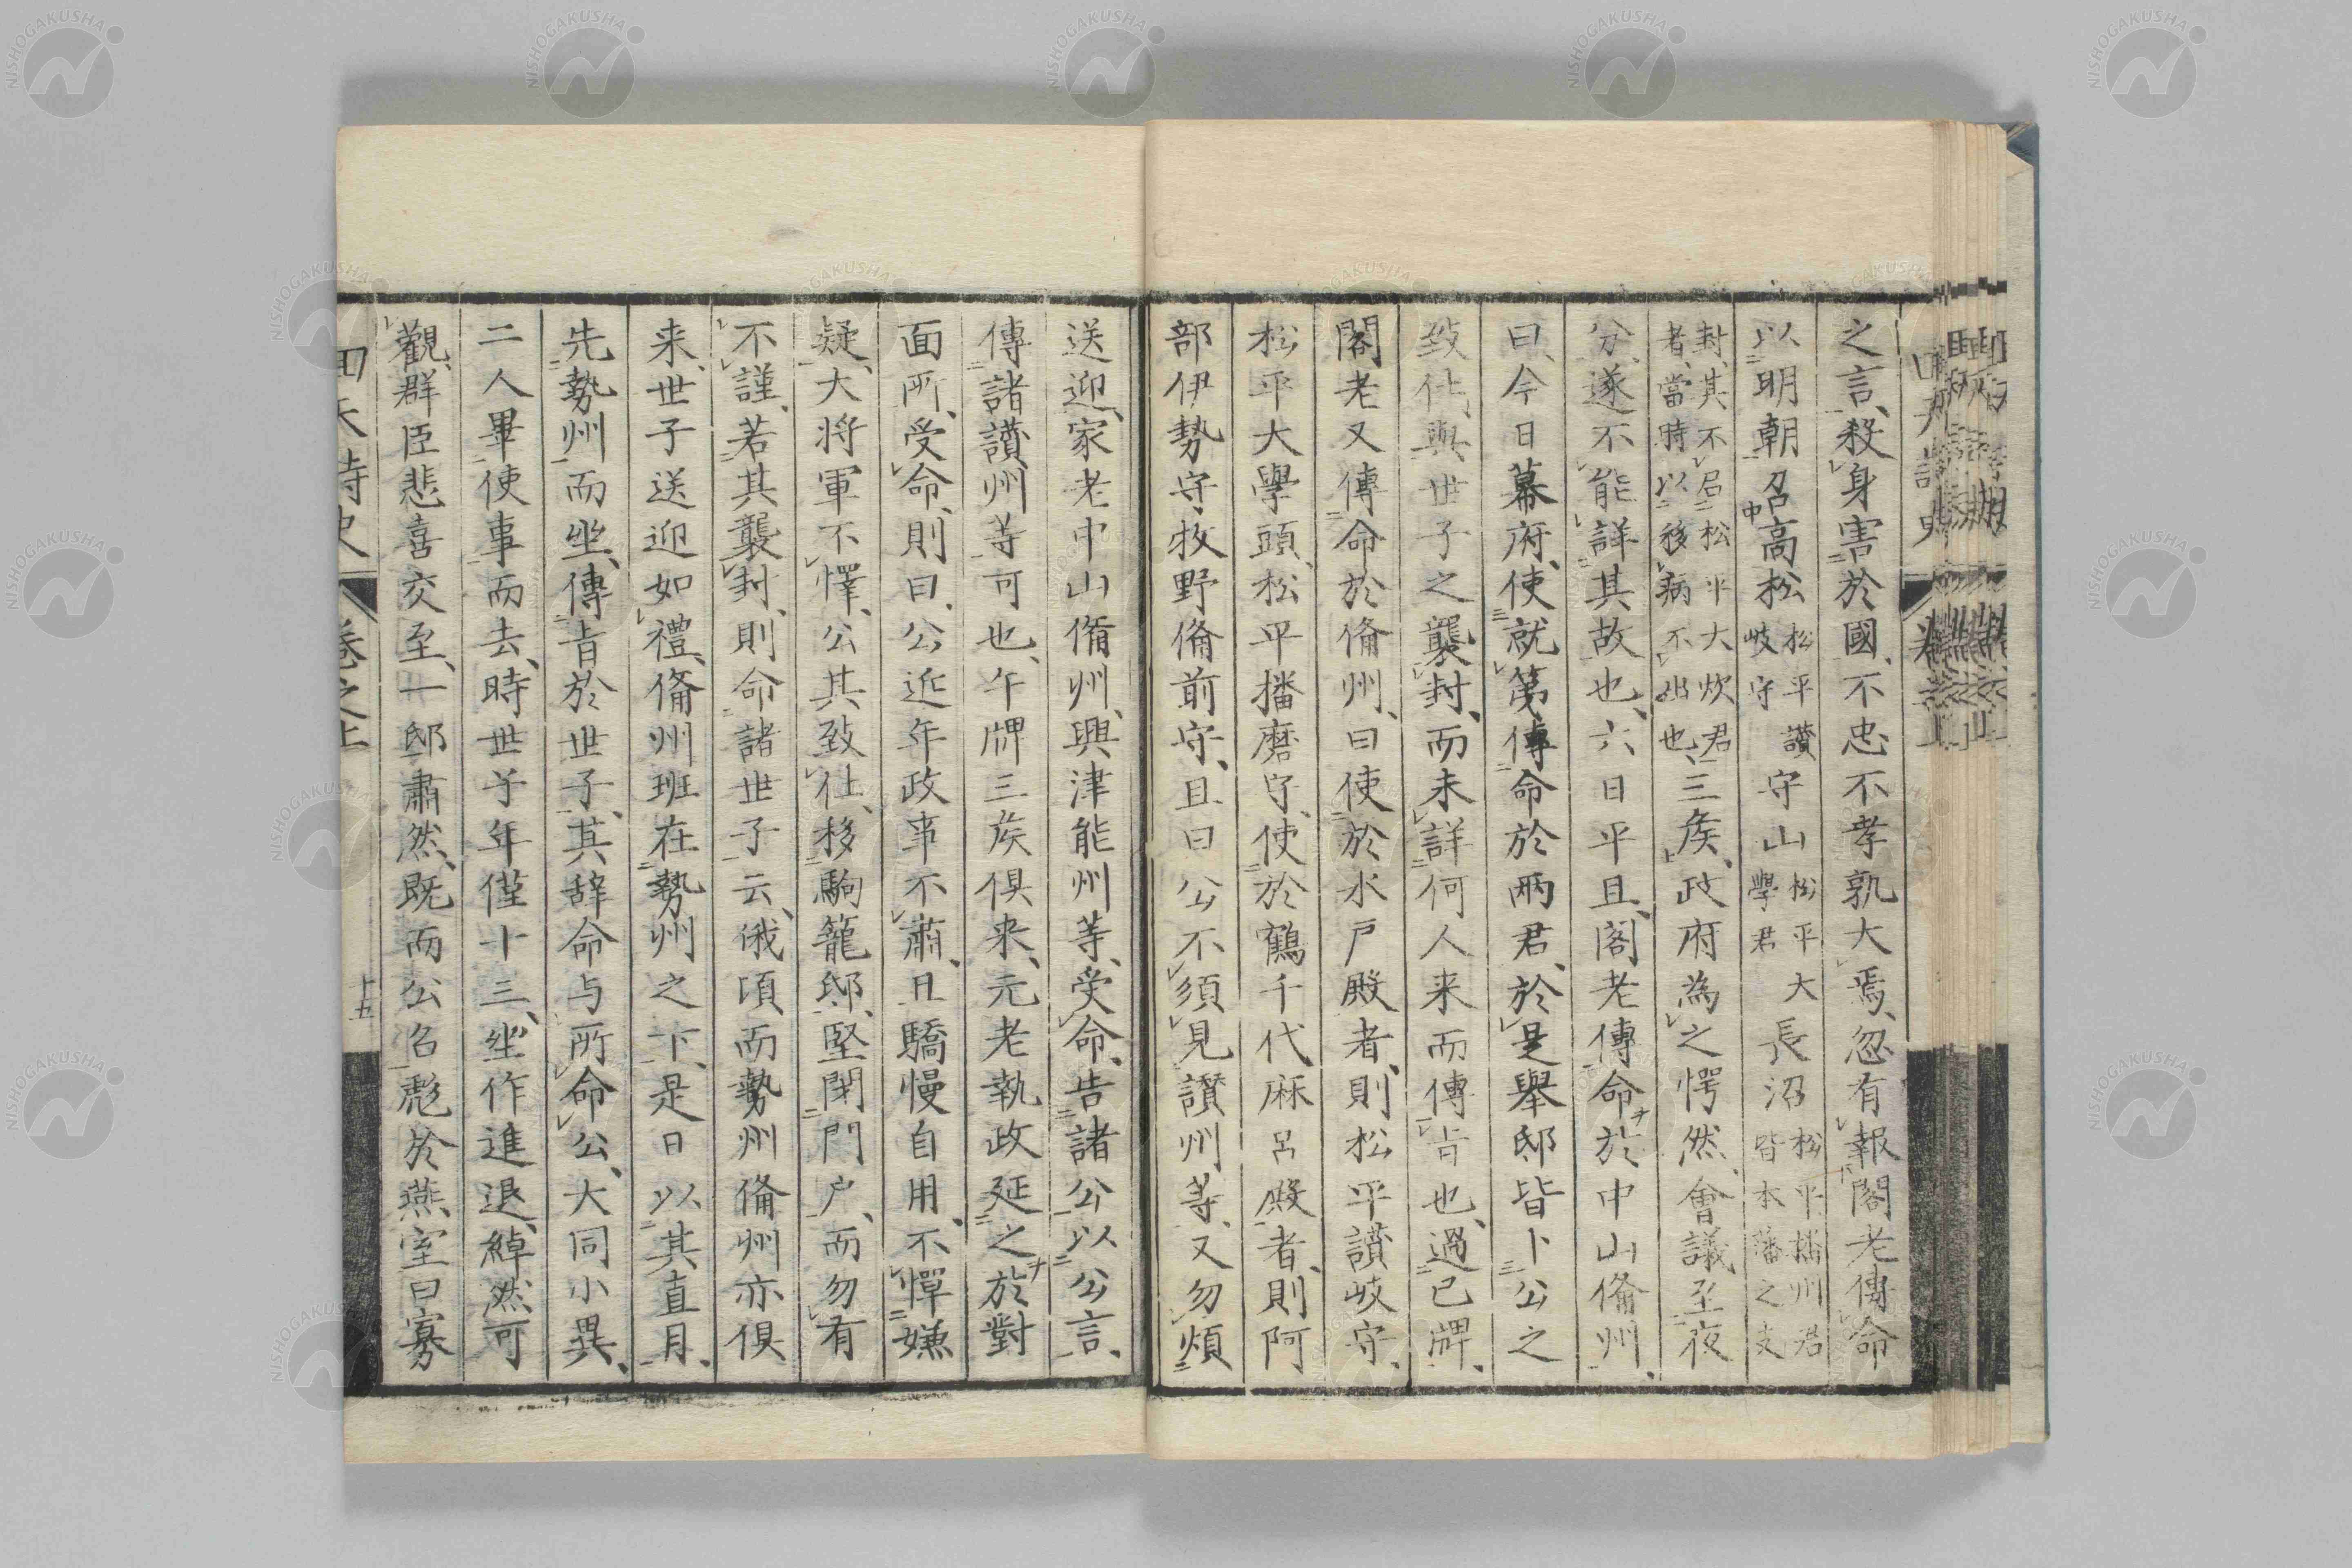 之言、殺身害於國、不忠不孝孰大焉、忽有報閣老傳命
以明朝召高松松平讃岐守守山松平大學君長沼松平播州君皆本藩之支
封、其不召松平大炊君者、當時以移病不出也、三矦、政府為之愕然、會議至夜
分、遂不能詳其故也、六日平旦、閣老傳命於中山備州、
曰、今日幕府、使就第傳命於兩君、於是舉邸皆卜公之
致仕、與世子之襲封、而未詳何人来而傳㫖也、過已牌、
閣老又傳命於備州、曰使於水戸殿者、則松平讃岐守、
松平大學頭、松平播磨守、使於鶴千代麻呂殿者、則阿
部伊勢守牧野備前守、且曰公不須見讃州等、又勿煩
送迎、家老中山備州、興津能州等、受命、告諸公以公言、
傳諸讃州等可也、午牌三矦俱来、元老執政延之於對
面所、受命、則曰、公近年政事不肅、且驕慢自用、不憚嫌
疑、大将軍不懌、公其致仕、移駒籠邸、堅閉門户、而勿有
不謹、若其襲封、則命諸世子云、俄頃而勢州備州亦俱
来、世子送迎如禮、備州班在勢州之下、是日以其直月、
先勢州而坐、傳㫖於世子、其辞命与所命公、大同小異、
二人畢使事而去、時世子年僅十三、坐作進退、綽然可
觀、群臣悲喜交至、一邸肅然、既而公召彪於燕室曰寡
回天詩史 卷之上 十五